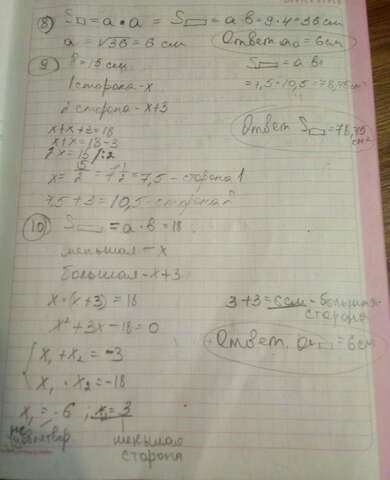 8) S▭ = a • a = S▭ = a b = 9 • 4 = 36 см
a = √36 = 6 см Ответ a▭ = 6 см
9) = 15 см S▭ = a b =
= 7,5 • 10,5 = 78,75 см²
1 сторона - x
2 сторона - x+3
x+x+3=18 Ответ S▭ = 78,75 см²
x+x=18-3
2x=15 /:2
x= 15/2 = 7 1/2 = 7,5 - сторона 1
7,5 + 3 = 10,5 - сторона 2
10) S▭ = a • b = 18
меньшая - x
большая - x+3
x • (x+3) = 18 3+3 = 6 см - большая сторона
x² + 3x - 18 = 0
x₁ + x₂ = -3 Ответ a▭ = 6 см
x₁ • x₂ = -18
x₁ = -6 ; x₂ = 3
не удовлетвор. меньшая
сторона